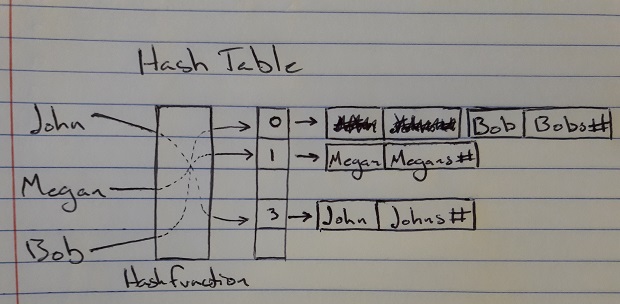 Hash Table
John
Megan
Bob
Hash function
0
1
3
Bob Bobs#
Megan Megans#
John Johns#